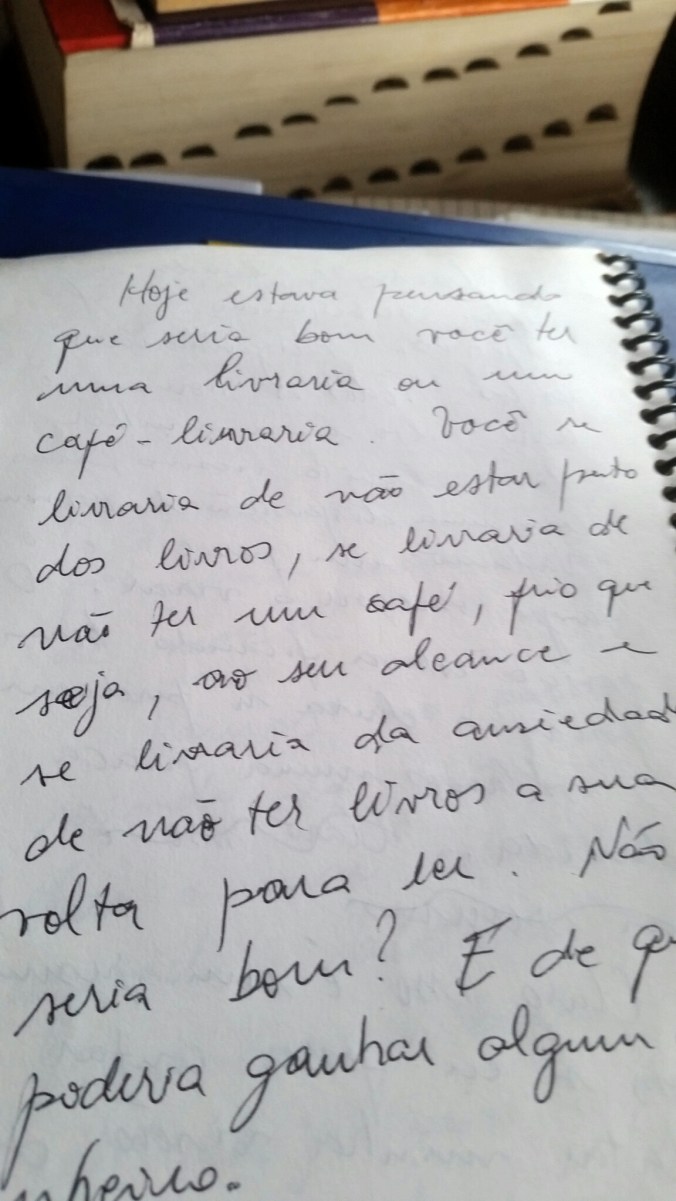 Hoje estava pensando
que seria bom você ter
uma livraria ou um
café - livraria. Você se
livraria de não estar perto
dos livros, se livraria de
não ter um café, frio que
seja, ao seu alcance e
se livraria da ansiedad
de não ter livros a sua
volta para ler. Não
seria bom? E de q
poderia ganhar algum
nheiro.